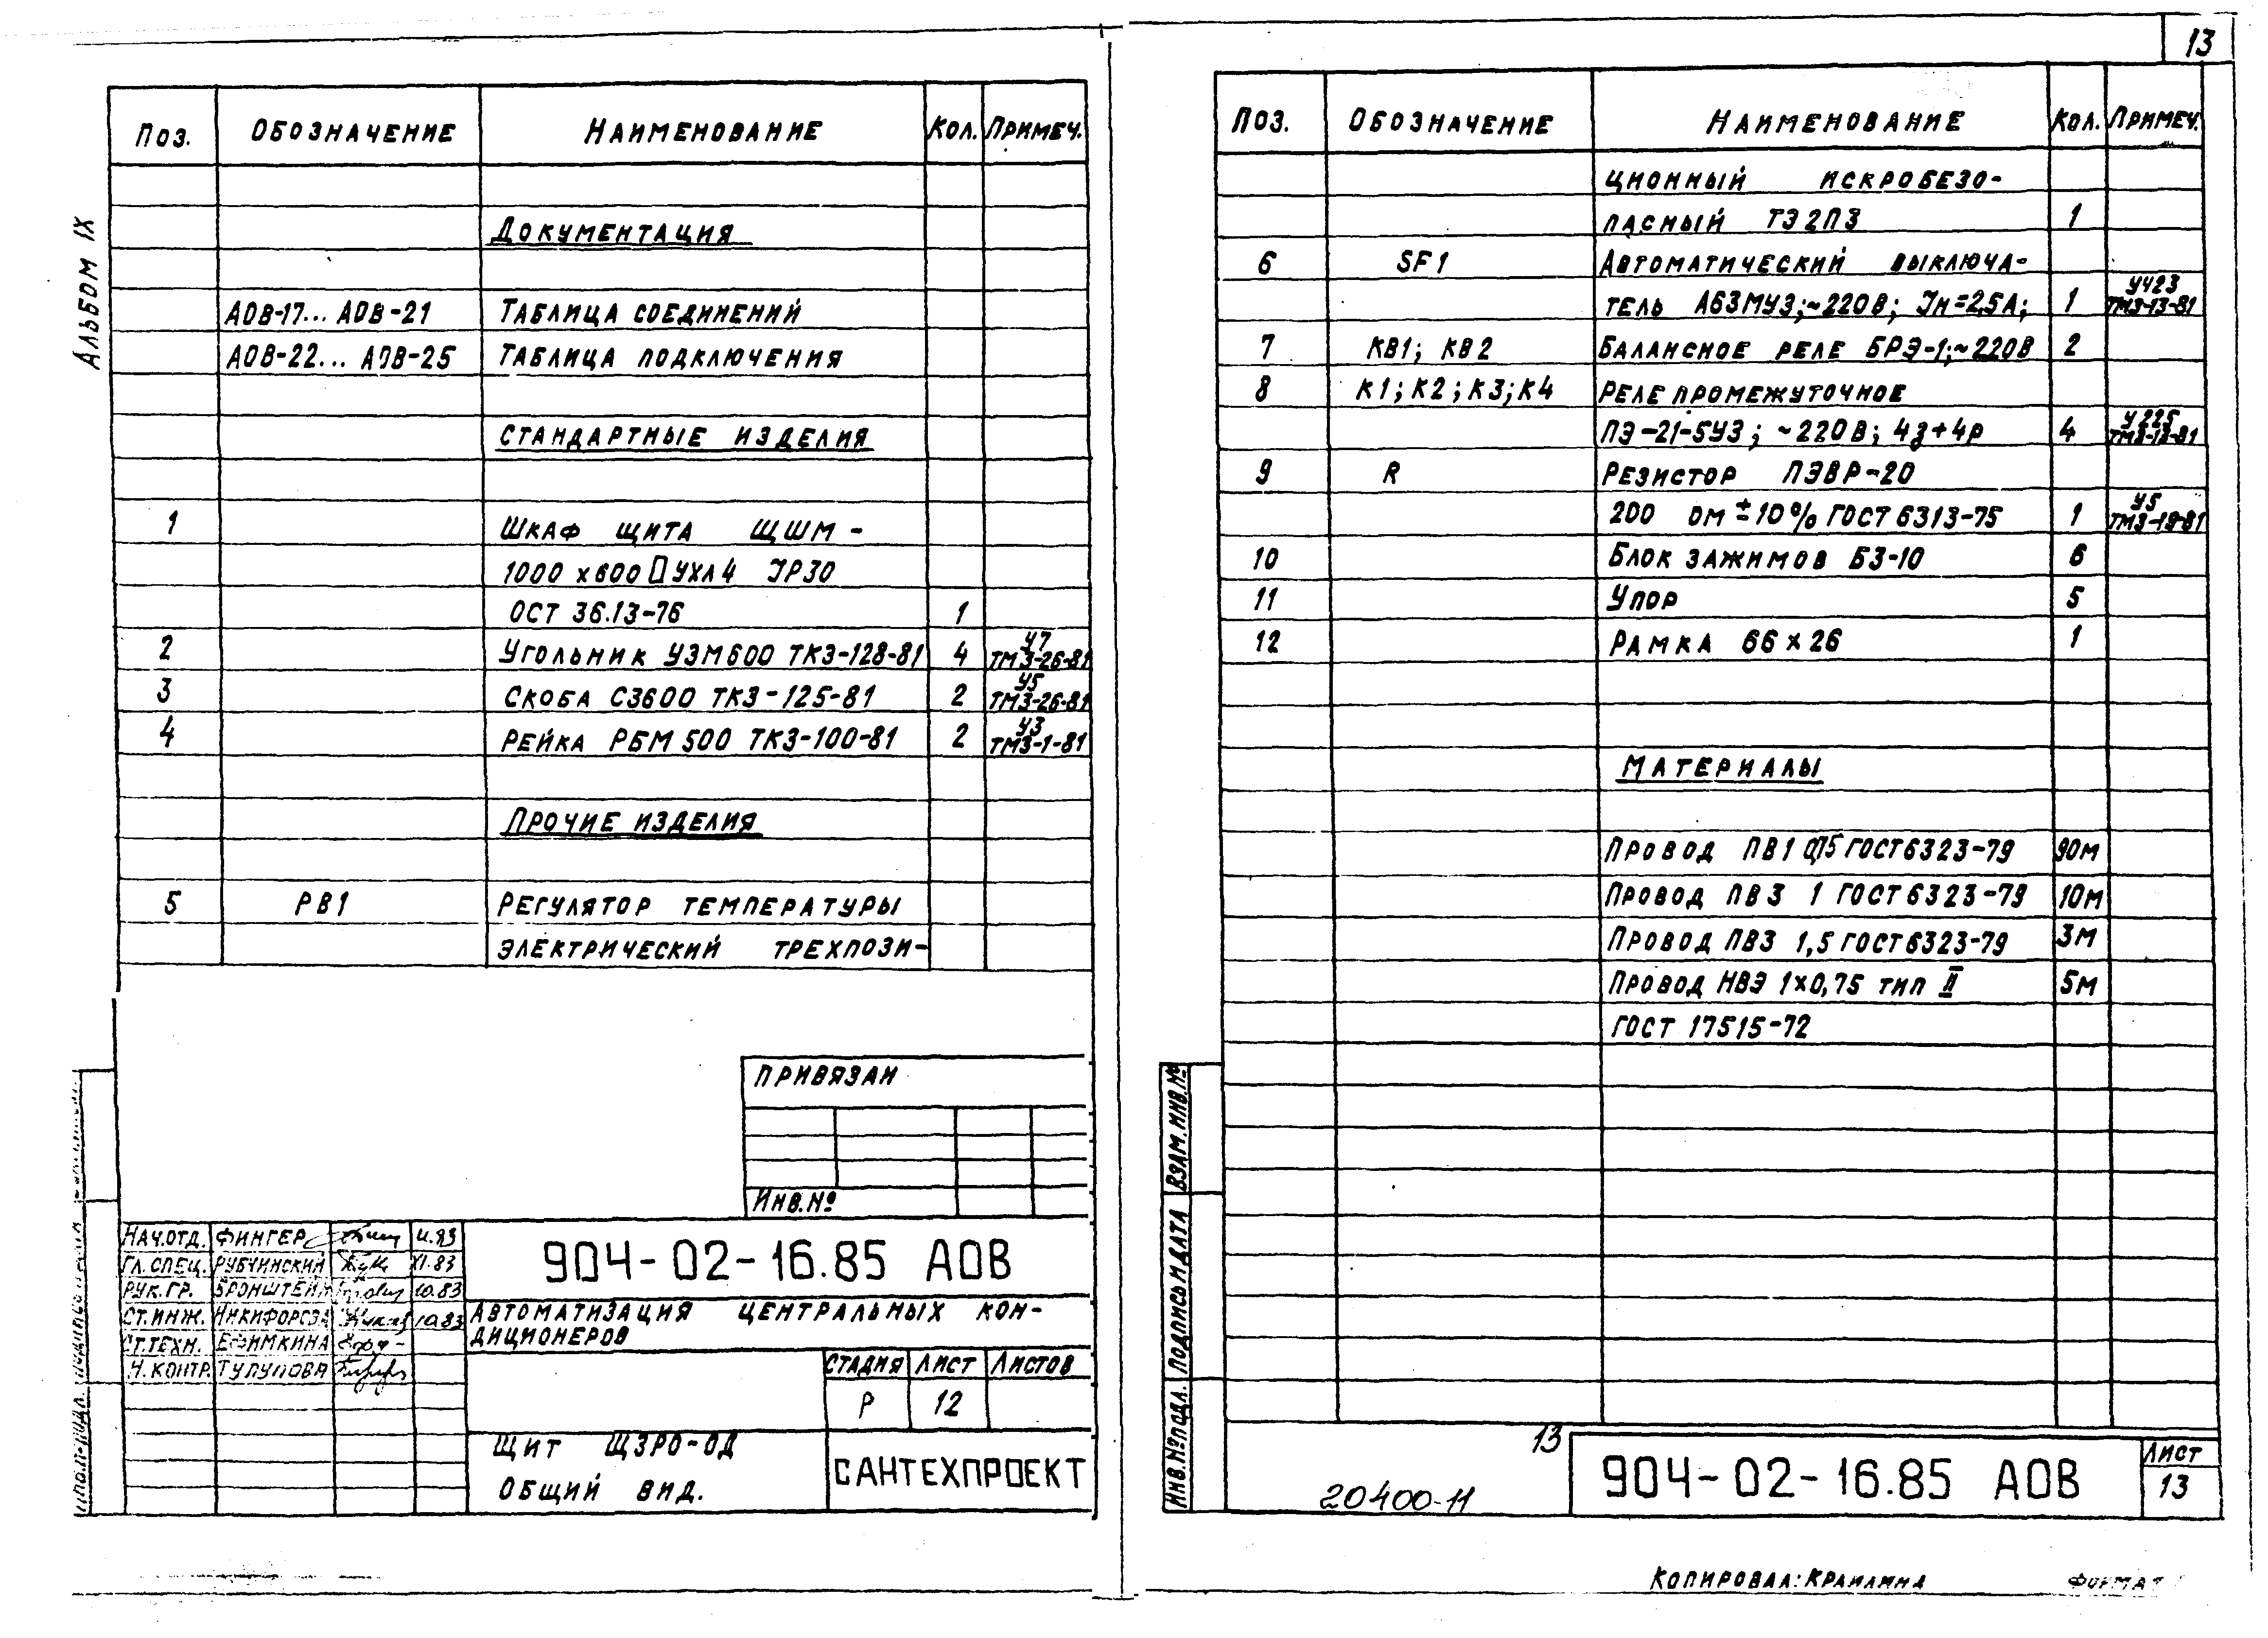 13
АЛЬБОМ IX
ПОЗ. ОБОЗНАЧЕНИЕ НАИМЕНОВАНИЕ КОЛ. ПРИМЕЧ.
ДОКУМЕНТАЦИЯ
АОВ-17... АОВ-21 ТАБЛИЦА СОЕДИНЕНИЙ
АОВ-22... АОВ-25 ТАБЛИЦА ПОДКЛЮЧЕНИЯ
СТАНДАРТНЫЕ ИЗДЕЛИЯ
1 ШКАФ ЩИТА ЩШМ -
1000 х 600 УХЛ4 IP30
ОСТ 36.13-76 1
2 УГОЛЬНИК УЗМ600 ТКЗ-128-81 4 У7 ТМЗ-26-81
3 СКОБА С3600 ТКЗ-125-81 2 У5 ТМЗ-26-81
4 РЕЙКА РБМ 500 ТКЗ-100-81 2 У3 ТМЗ-1-81
ПРОЧИЕ ИЗДЕЛИЯ
5 РВ1 РЕГУЛЯТОР ТЕМПЕРАТУРЫ
ЭЛЕКТРИЧЕСКИЙ ТРЕХПОЗИ-
ПРИВЯЗАН
ИНВ.№
НАЧ.ОТД. ФИНГЕР 11.83
ГЛ.СПЕЦ. РУБЧИНСКИЙ XI.83
РУК.ГР. БРОНШТЕЙН 10.83
СТ.ИНЖ. НИКИФОРОВА 10.83
СТ.ТЕХН. ЕФИМКИНА
Н.КОНТР. ТУЛУПОВА
904-02-16.85 АОВ
АВТОМАТИЗАЦИЯ ЦЕНТРАЛЬНЫХ КОН-
ДИЦИОНЕРОВ
СТАДИЯ ЛИСТ ЛИСТОВ
Р 12
ЩИТ ЩЗРО-ОД
ОБЩИЙ ВИД.
САНТЕХПРОЕКТ
ПОЗ. ОБОЗНАЧЕНИЕ НАИМЕНОВАНИЕ КОЛ. ПРИМЕЧ.
ЦИОННЫЙ ИСКРОБЕЗО-
ПАСНЫЙ ТЭ2ПЗ 1
6 SF1 АВТОМАТИЧЕСКИЙ ВЫКЛЮЧА-
ТЕЛЬ А63МУЗ;~220В; Iн=2,5А; 1 УЧ23 ТМЗ-13-81
7 КВ1; КВ2 БАЛАНСНОЕ РЕЛЕ БРЭ-1;~220В 2
8 К1; К2; К3; К4 РЕЛЕ ПРОМЕЖУТОЧНОЕ
ПЭ-21-5УЗ; ~220В; 4з+4р 4 У225 ТМЗ-13-81
9 R РЕЗИСТОР ПЭВР-20
200 ОМ ±10% ГОСТ 6313-75 1 У5 ТМЗ-19-81
10 БЛОК ЗАЖИМОВ БЗ-10 6
11 УПОР 5
12 РАМКА 66х26 1
МАТЕРИАЛЫ
ПРОВОД ПВ1 ГОСТ 6323-79 90М
ПРОВОД ПВ3 1 ГОСТ 6323-79 10М
ПРОВОД ПВ3 1,5 ГОСТ 6323-79 3М
ПРОВОД НВЭ 1х0,75 ТИП II 5М
ГОСТ 17515-72
ВЗАМ.ИНВ.№
ПОДПИСЬ И ДАТА
ИНВ.№ПОДЛ.
13
20400-11
904-02-16.85 АОВ
ЛИСТ
13
КОПИРОВАЛ: КРАИЛИНА ФОРМАТ